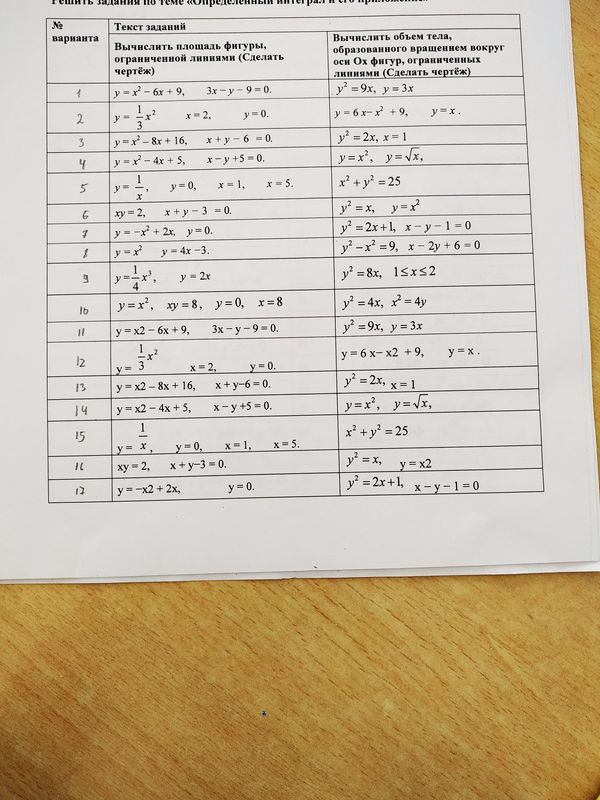 Решить задания по теме «Определенный интеграл и его приложение»
№ варианта Текст заданий
Вычислить площадь фигуры, ограниченной линиями (Сделать чертёж) Вычислить объем тела, образованного вращением вокруг оси Ох фигур, ограниченных линиями (Сделать чертёж)
1 y = x² – 6x + 9, 3x – y – 9 = 0. y² = 9x, y = 3x
2 y = 1/3 x² x = 2, y = 0. y = 6 x– x² + 9, y = x .
3 y = x² – 8x + 16, x + y – 6 = 0. y² = 2x, x = 1
4 y = x² – 4x + 5, x – y +5 = 0. y = x², y = √x,
5 y = 1/x, y=0, x = 1, x = 5. x² + y² = 25
6 xy = 2, x + y – 3 = 0. y² = x, y = x²
7 y = –x² + 2x, y = 0. y² = 2x+1, x – y – 1 = 0
8 y = x² y = 4x –3. y² – x² = 9, x – 2y + 6 = 0
9 y=1/4 x³, y = 2x y² = 8x, 1≤x≤2
10 y = x², xy = 8, y = 0, x = 8 y² = 4x, x² = 4y
11 y = x2 – 6x + 9, 3x – y – 9 = 0. y² = 9x, y = 3x
12 y = 1/3 x² x = 2, y = 0. y = 6 x– x2 + 9, y = x .
13 y = x2 – 8x + 16, x + y–6 = 0. y² = 2x, x = 1
14 y = x2 – 4x + 5, x – y +5 = 0. y = x², y = √x,
15 y = 1/x, y = 0, x = 1, x = 5. x² + y² = 25
16 xy = 2, x + y–3 = 0. y² = x, y = x2
17 y = –x2 + 2x, y = 0. y² = 2x+1, x – y – 1 = 0